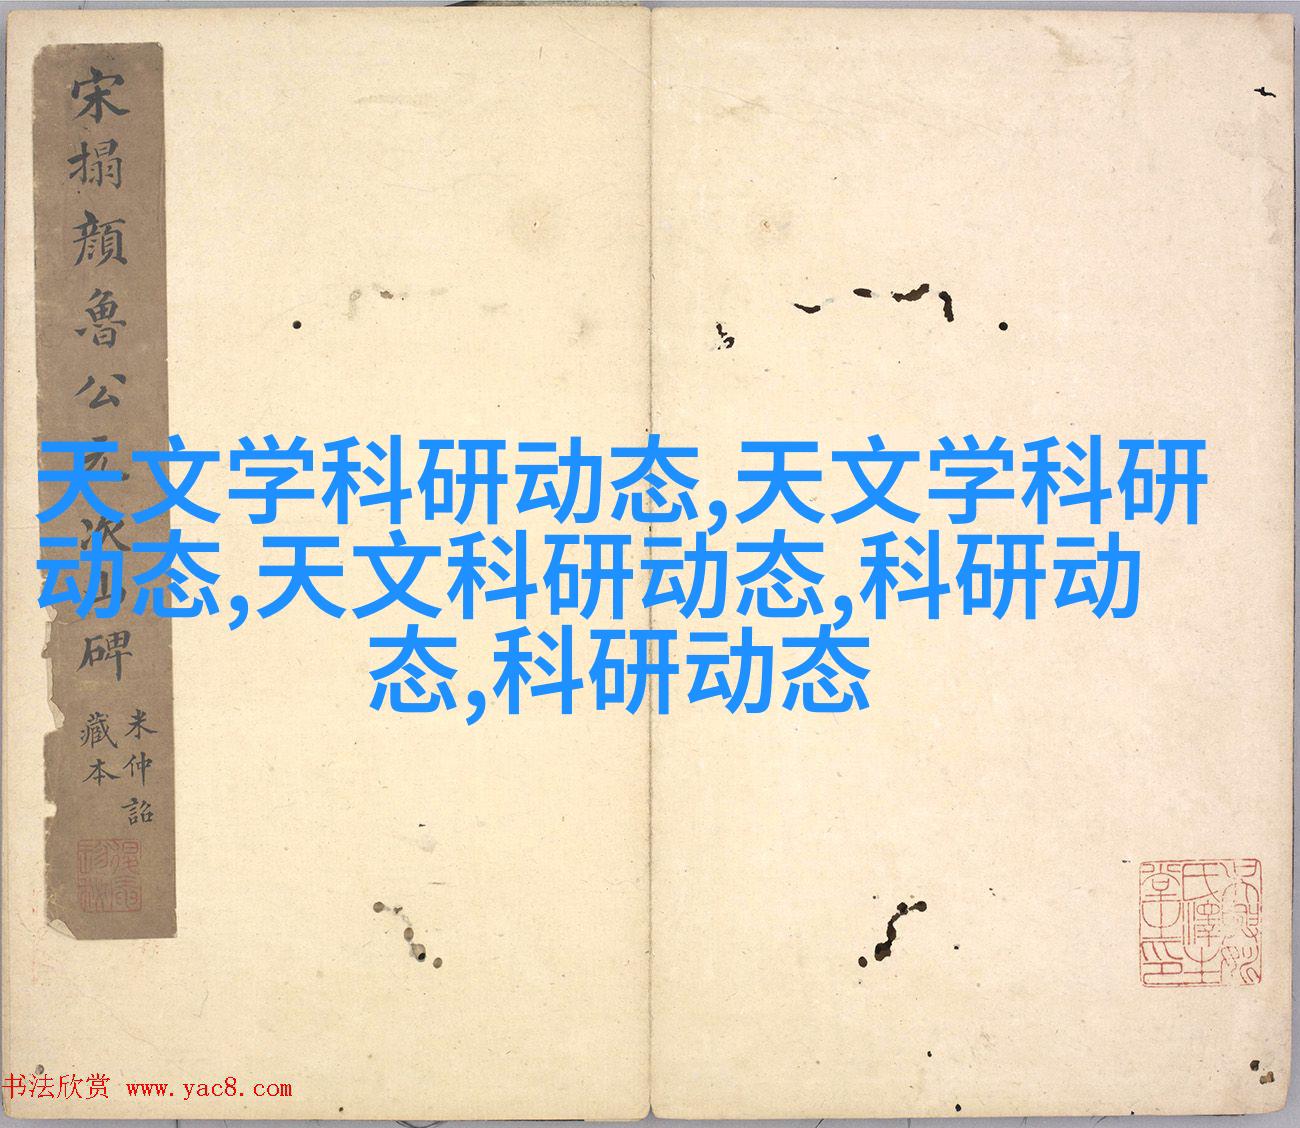 宋搨顔魯公元次山碑
米仲詔
藏本
天文学科研动态,天文学科研
动态,天文科研动态,科研动
态,科研动态
书法欣赏 www.yac8.com